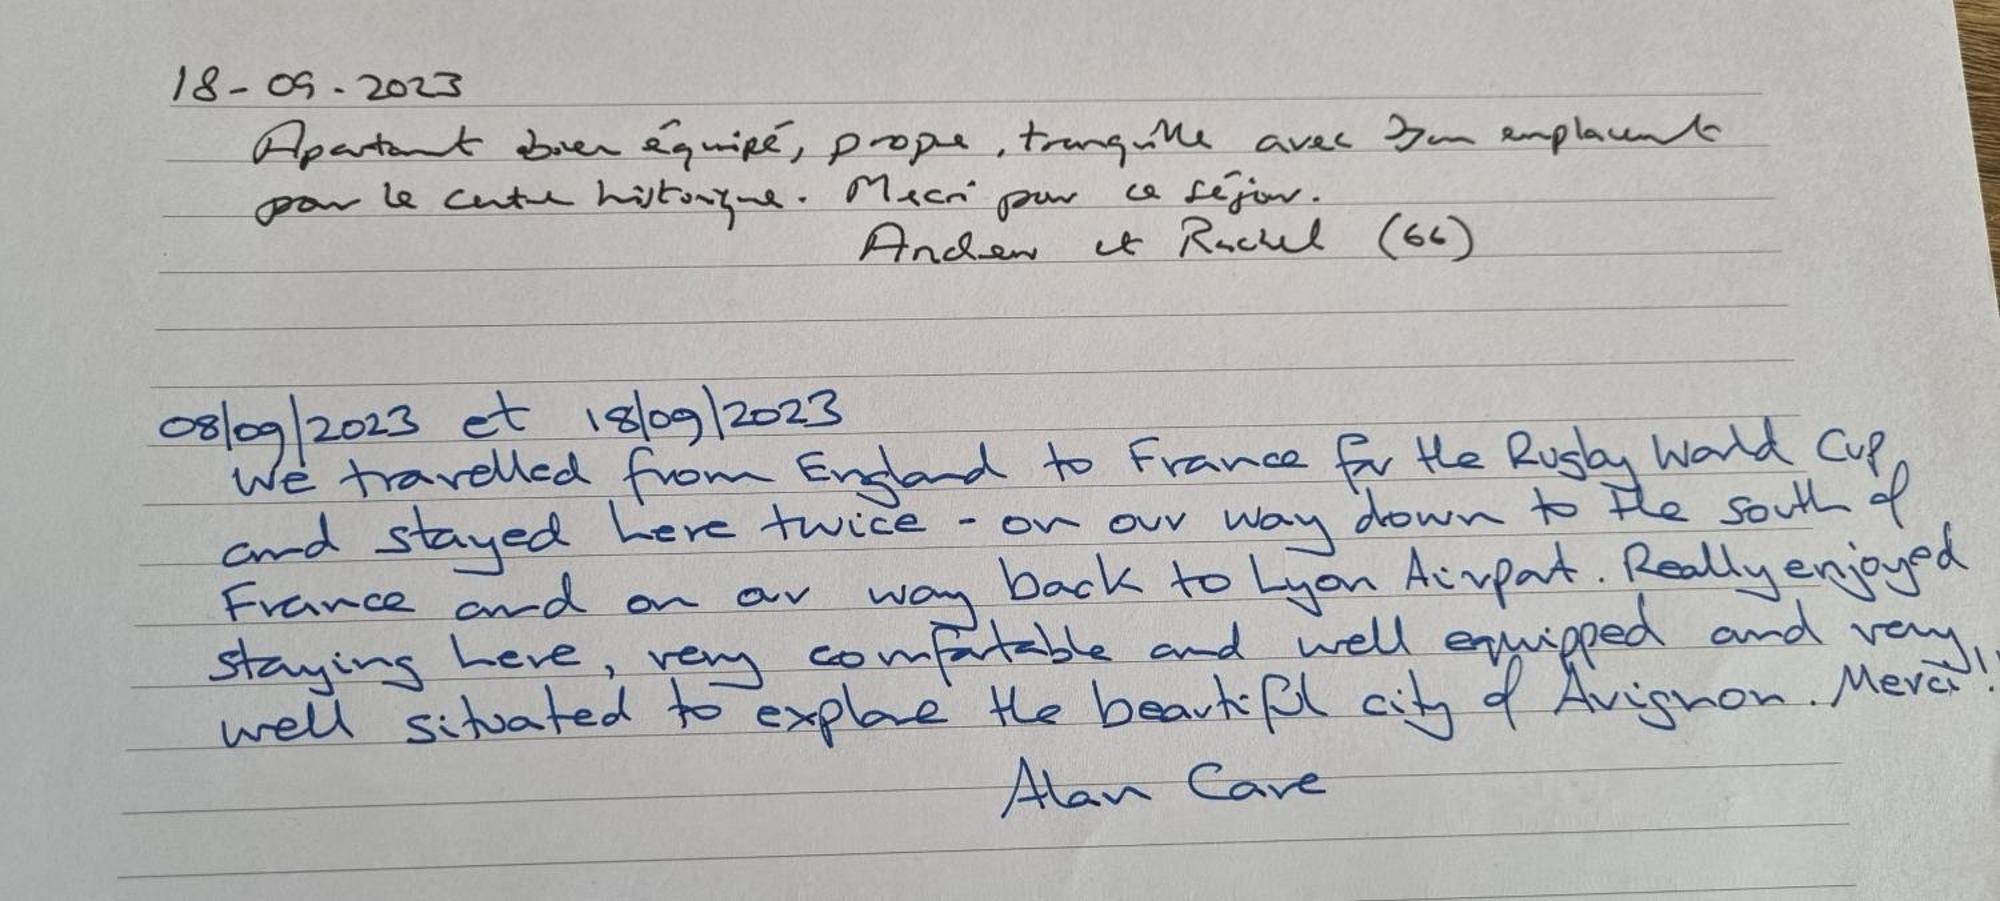 18-09-2023
Apartament bien équipé, propre, tranquille avec bon emplacement
pour le centre historique. Merci pour ce séjour.
Andrew et Rachel (66)
08/09/2023 et 18/09/2023
We travelled from England to France for the Rugby World Cup,
and stayed here twice - on our way down to the south of
France and on our way back to Lyon Airport. Really enjoyed
staying here, very comfortable and well equipped and very
well situated to explore the beautiful city of Avignon. Merci!!
Alan Cave